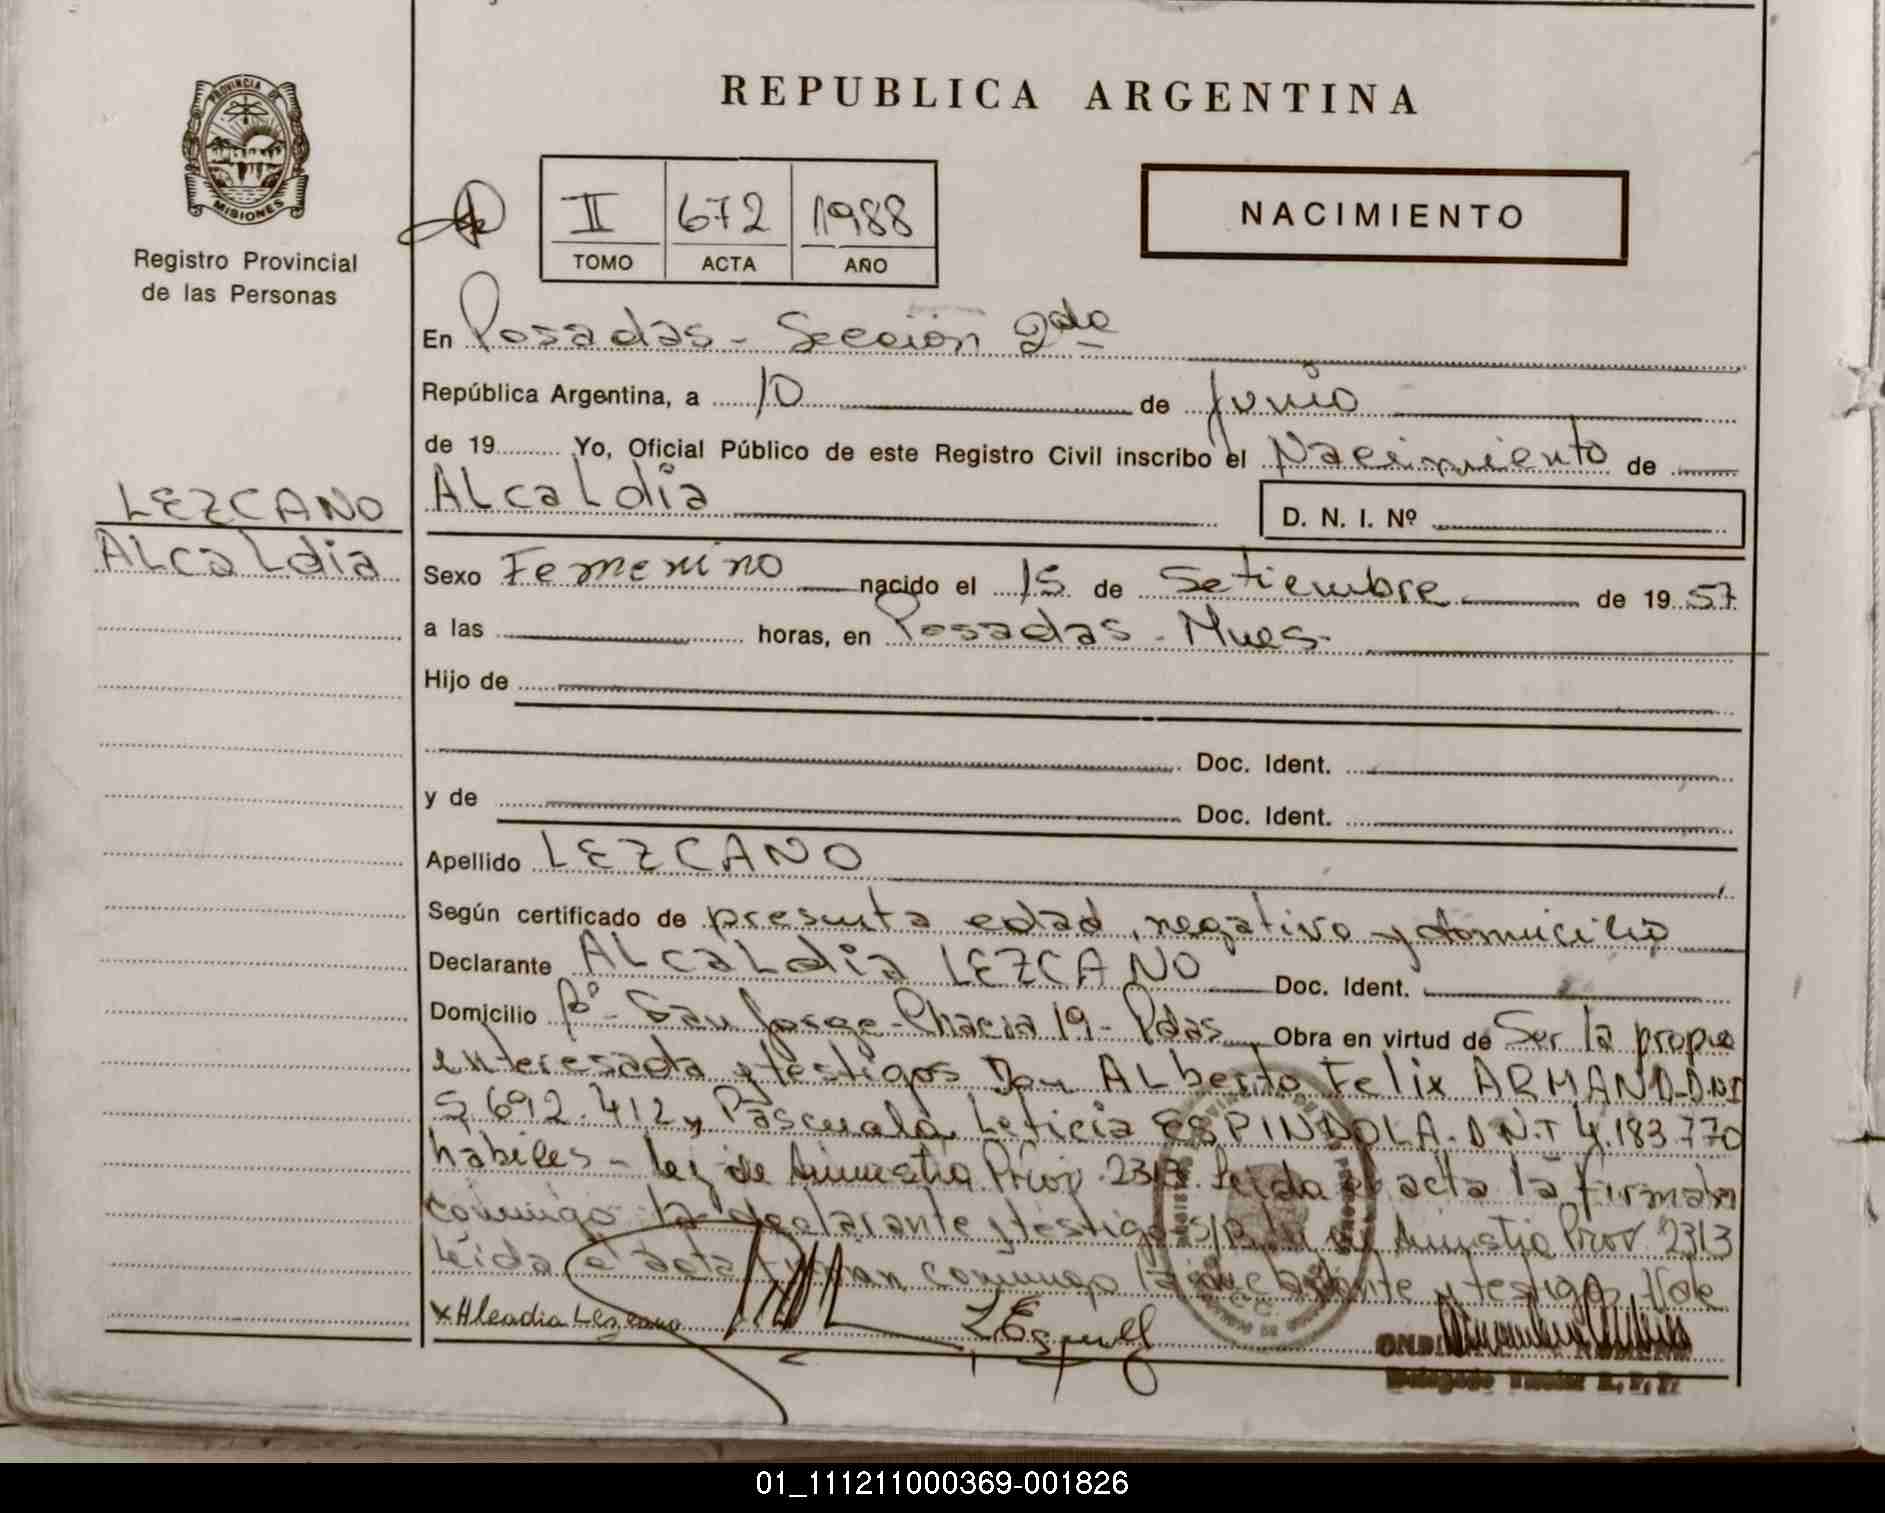 PROVINCIA DE
MISIONES
Registro Provincial
de las Personas
REPUBLICA ARGENTINA
II 672 1988
TOMO ACTA AÑO
NACIMIENTO
En Posadas - Sección 2da
República Argentina, a 10 de junio
de 19 Yo, Oficial Público de este Registro Civil inscribo el Nacimiento de
LEZCANO
ALcaLdia
ALcaLdia
D. N. I. Nº
Sexo Femenino nacido el 15 de Setiembre de 19 57
a las horas, en Posadas - Mnes.
Hijo de
Doc. Ident.
y de Doc. Ident.
Apellido LEZCANO
Según certificado de presunta edad, negativo y domicilio
Declarante ALcaLdia LEZCANO Doc. Ident.
Domicilio Bº - San Jorge - Chacra 19 - Pdas Obra en virtud de Ser la propia
interesada y testigos Don ALberto Felix ARMAND - D.N.I
5.692.412 y Pascuala Leticia ESPINDOLA. D.N.I 4.183.770
hábiles - ley de Amnistia Prov. 2313. Leida el acta la firman
conmigo la declarante y testigos Amnistia Prov 2313
Leida el acta firman conmigo la declarante y testigos
x Alcadia Lezcano
01_111211000369-001826